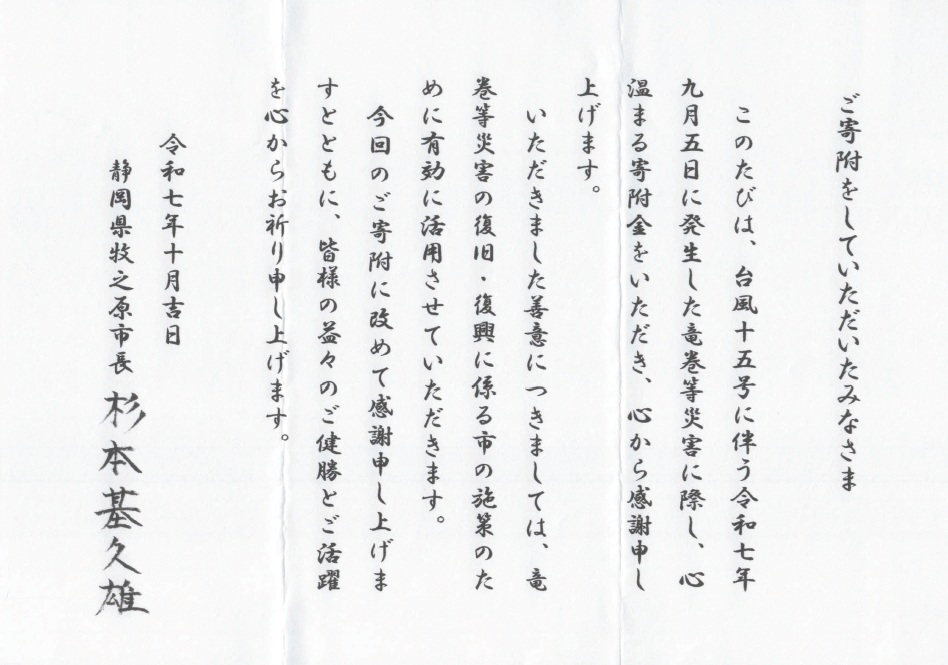 ご寄附をしていただいたみなさま
このたびは、台風十五号に伴う令和七年
九月五日に発生した竜巻等災害に際し、心
温まる寄附金をいただき、心から感謝申し
上げます。
いただきました善意につきましては、竜
巻等災害の復旧・復興に係る市の施策のた
めに有効に活用させていただきます。
今回のご寄附に改めて感謝申し上げま
すとともに、皆様の益々のご健勝とご活躍
を心からお祈り申し上げます。
令和七年十月吉日
静岡県牧之原市長 杉本基久雄